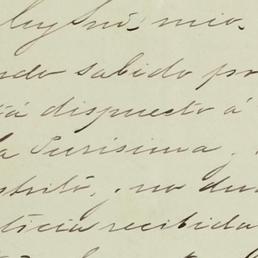 ley Sr. mio.
ndo sabido por
tá dispuesto á
la Purísima,
strito, no du
ticia recibida